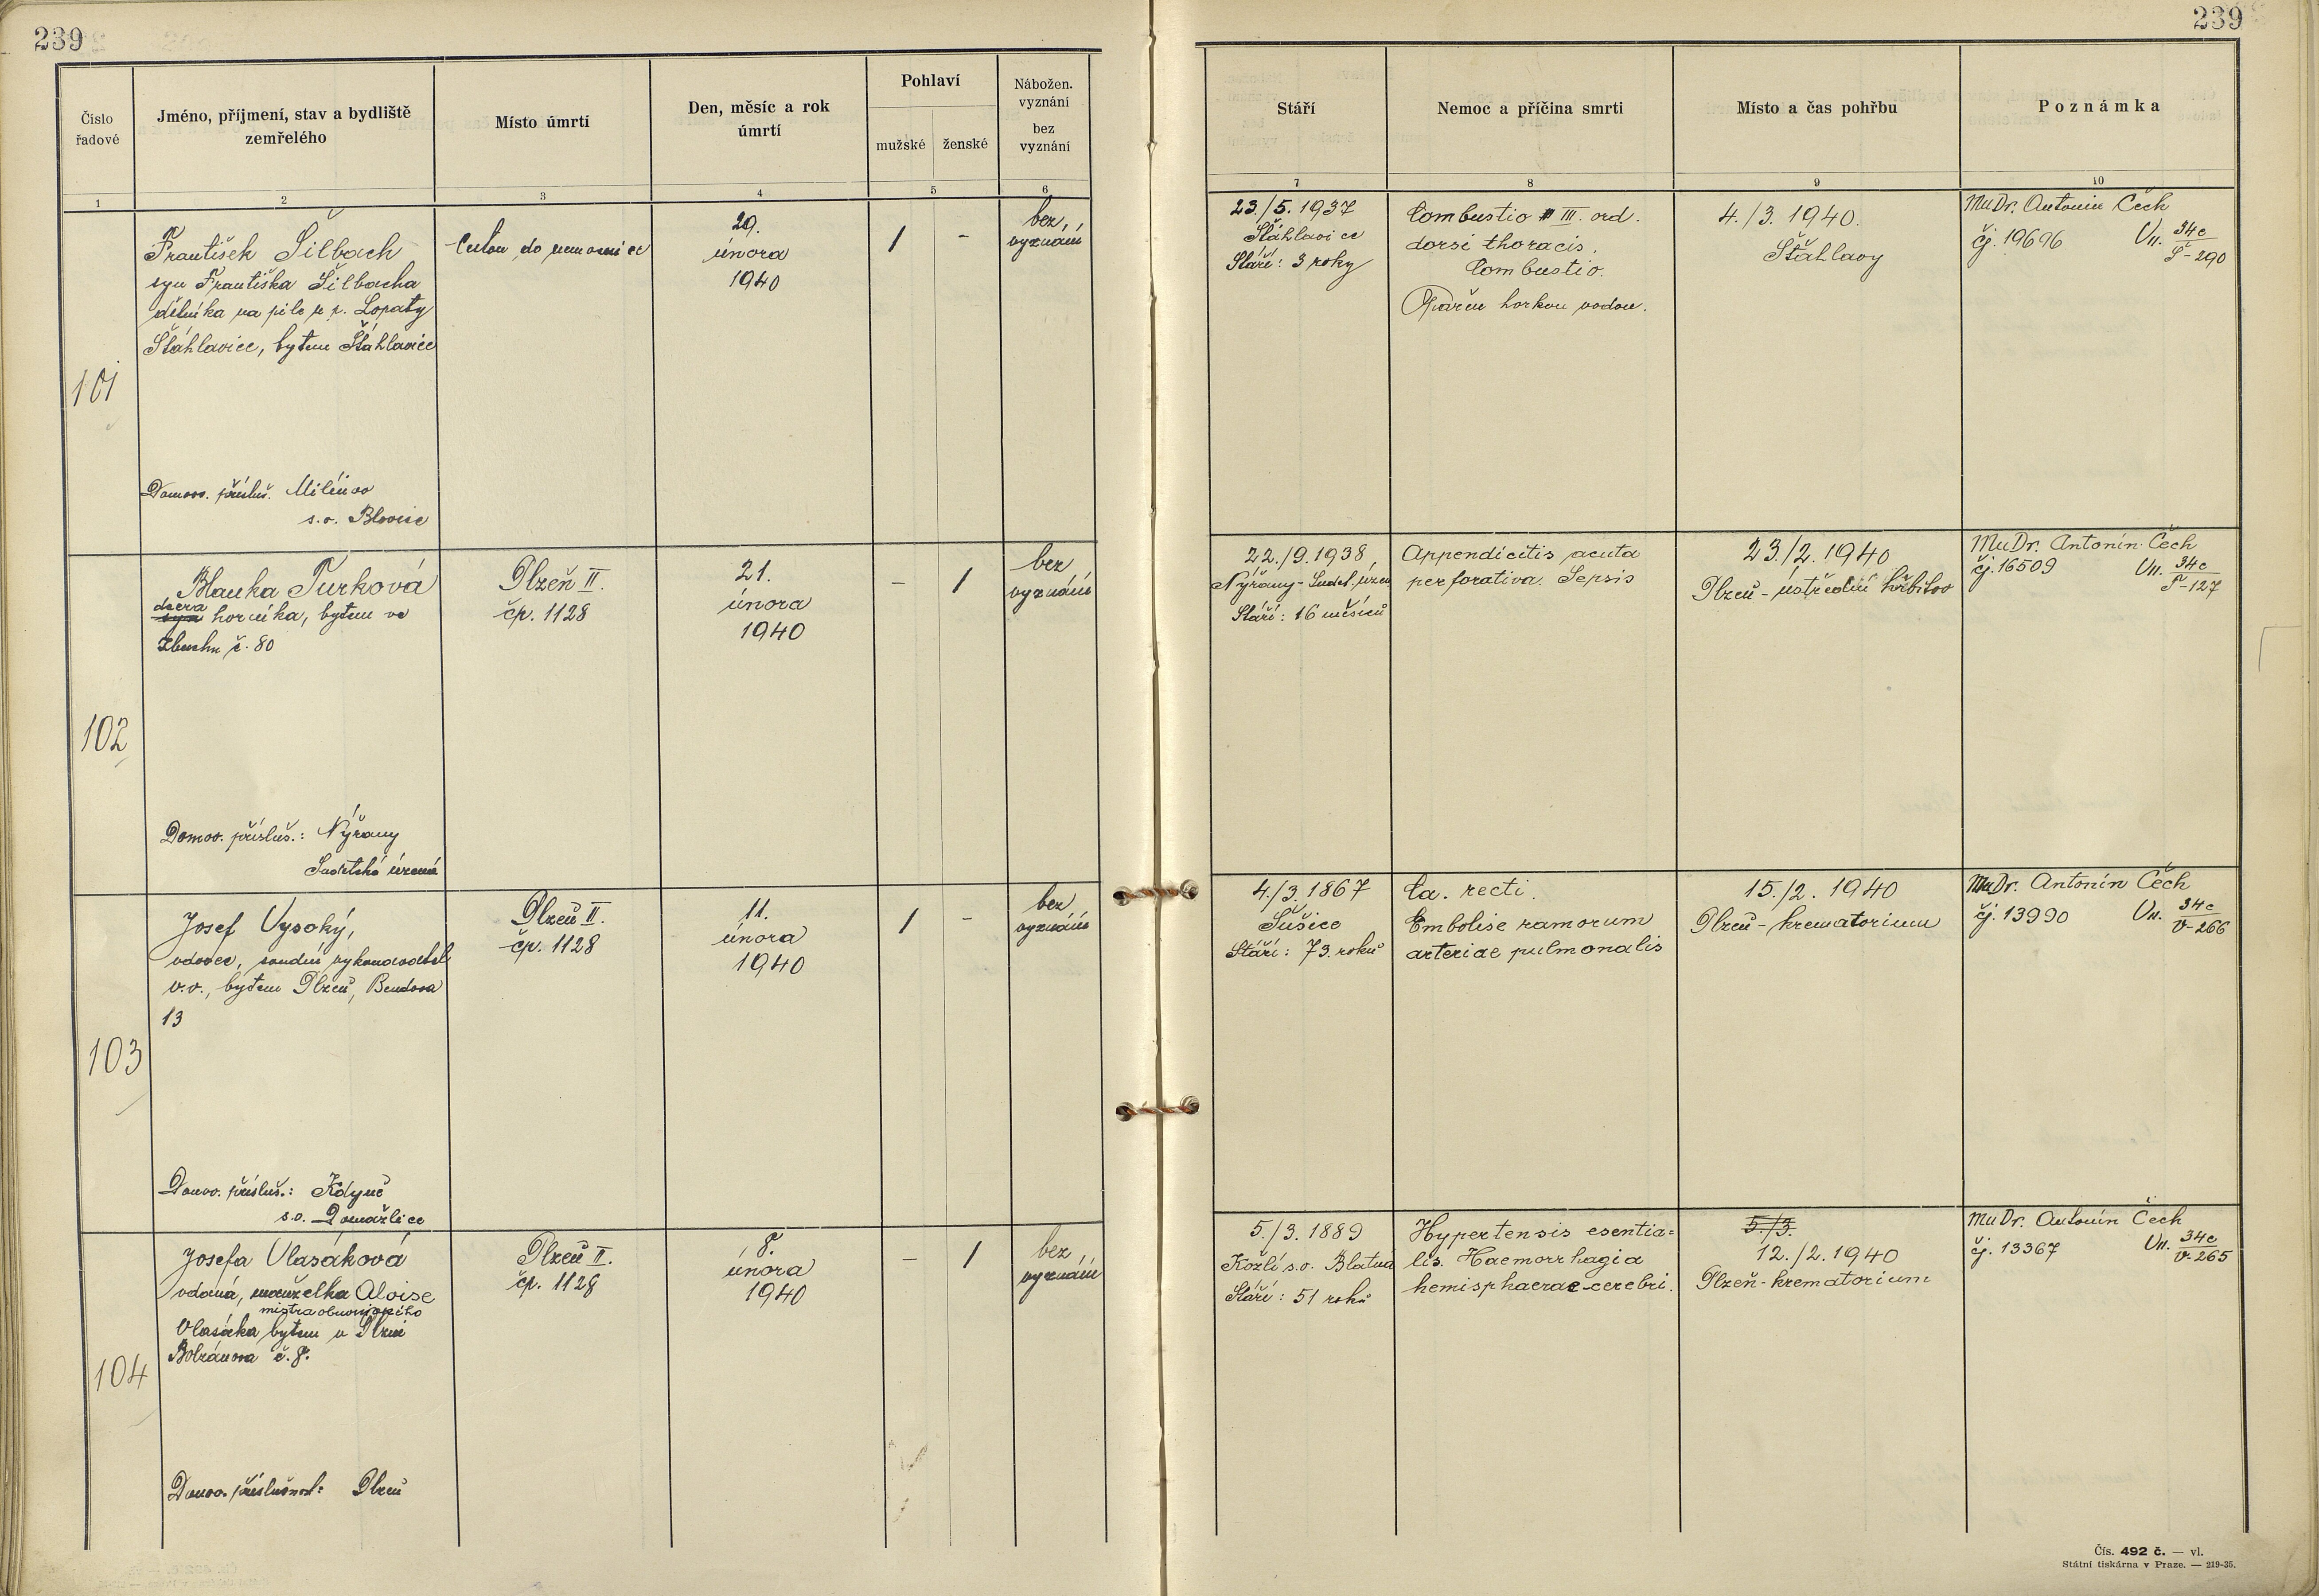 239
239
Číslo řadové
Jméno, příjmení, stav a bydliště zemřelého
Místo úmrtí
Den, měsíc a rok úmrtí
Pohlaví
mužské
ženské
Nábožen. vyznání
bez vyznání
Stáří
Nemoc a příčina smrti
Místo a čas pohřbu
Poznámka
1
2
3
4
5
6
7
8
9
10
101
František Šilbach
syn Františka Šilbacha
dělníka na pile u p. Lopaty
Šťáhlavice, bytem Šťáhlavice
Domov. přísluš. Milínov
s.o. Blovice
Cestou do nemocnice
29.
února
1940
/
-
bez
vyznání
23./5. 1937
Šťáhlavice
Stáří: 3 roky
Combustio III. ord.
dorsi thoracis.
Combustio.
Opařen horkou vodou.
4./3. 1940.
Šťáhlavy
MuDr. Antonín Čech
čj. 19696 Vn. 34c
Š-290
102
Blanka Turková
dcera
syn horníka, bytem ve
Zbuchu č. 80
Domov. přísluš.: Nýřany
Sudetské území
Plzeň II.
čp. 1128
21.
února
1940
-
/
bez
vyznání
22./9. 1938,
Nýřany - Sudet. územ
Stáří: 16 měsíců
Appendicitis acuta
perforativa. Sepsis
23./2. 1940
Plzeň - ústřední hřbitov
MuDr. Antonín Čech
čj. 16509 Vn. 34c
T-127
103
Josef Vysoký,
vdovec, soudní vykonavatel
v.v., bytem Plzeň, Bendova
13
Domov. přísluš.: Kdyně
s.o. Domažlice
Plzeň II.
čp. 1128
11.
února
1940
/
-
bez
vyznání
4./3. 1867
Sušice
Stáří: 73. roků
Ca. recti.
Embolise ramorum
arteriae pulmonalis
15./2. 1940
Plzeň - krematorium
MuDr. Antonín Čech
čj. 13990 Vn. 34c
V-266
104
Josefa Vlasáková
vdaná, manželka Aloise
mistra obuvnického
Vlasáka bytem v Plzni
Bolzánova č. 8.
Domov. příslušnost: Plzeň
Plzeň II.
čp. 1128
8.
února
1940
-
/
bez
vyznání
5./3. 1889
Kozlí s.o. Blatná
Stáří: 51 roků
Hypertensis esentia=
lis. Haemorrhagia
hemisphaerae cerebri.
5./3.
12./2. 1940
Plzeň - krematorium
MuDr. Antonín Čech
čj. 13367 Vn. 34c
V-265
Čís. 492 č. — vl.
Státní tiskárna v Praze. — 219-35.